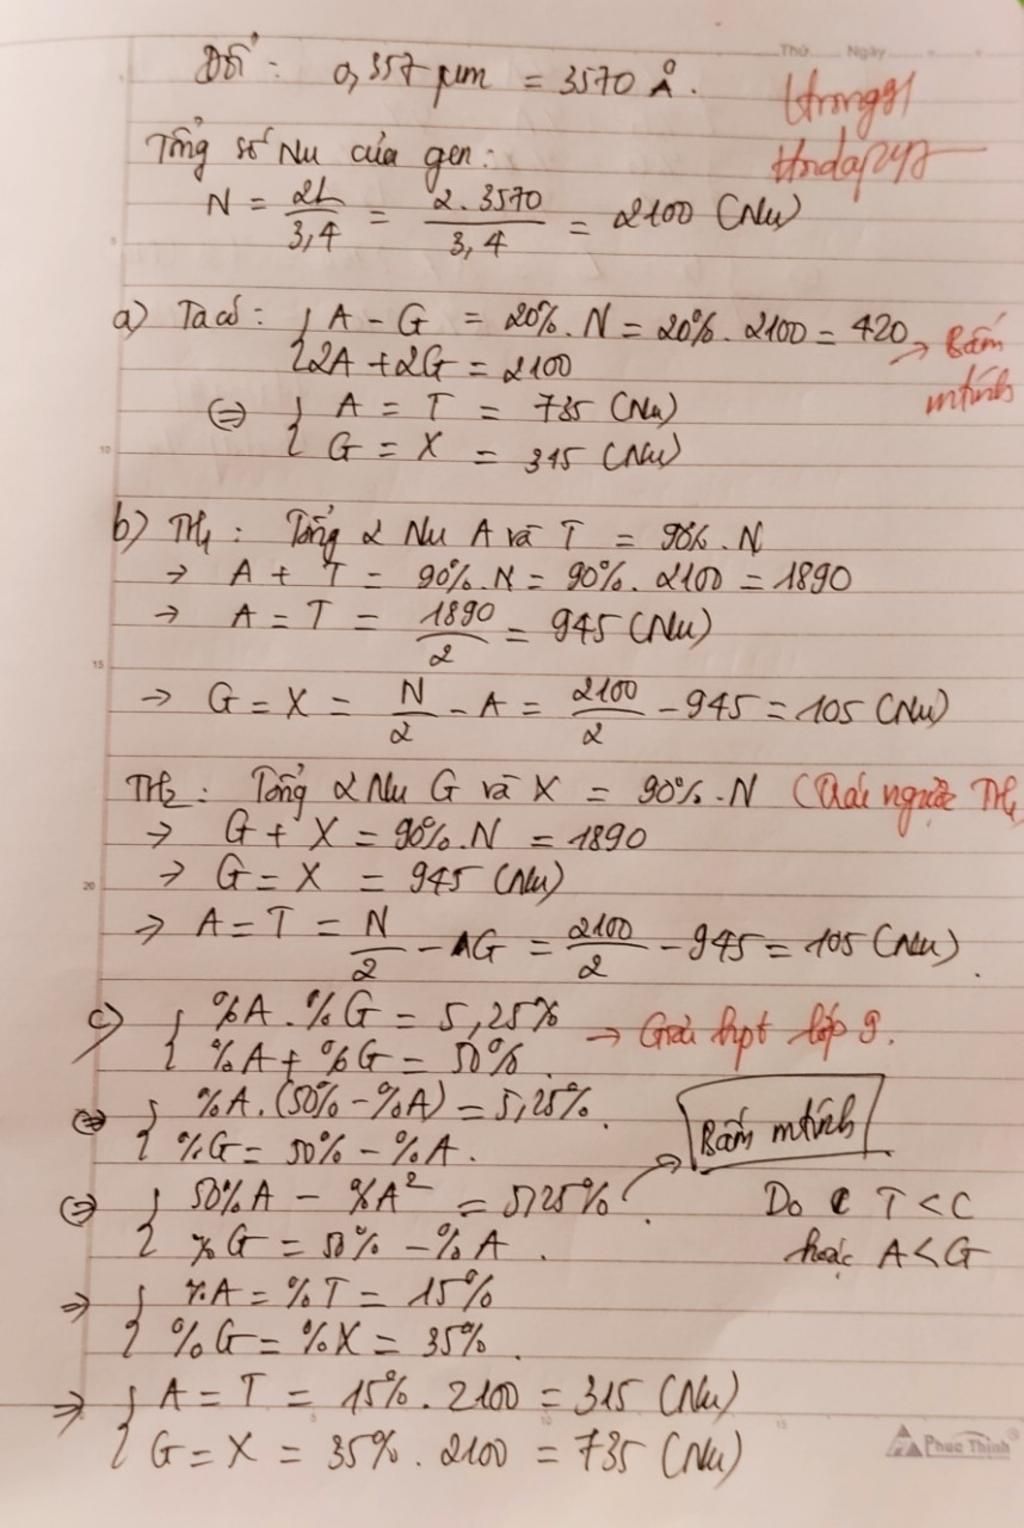 Thứ Ngày
Đổi: 0,357 µm = 3570 Å.
Ttrong91
Tổng số Nu của gen:
N = 2L/3,4 = 2.3570/3,4 = 2100 (Nu)
a) Ta có: { A - G = 20%.N = 20%.2100 = 420 → Bấm mtính
{ 2A + 2G = 2100
(=) { A = T = 735 (Nu)
{ G = X = 315 (Nu)
b) TH1: Tổng 2 Nu A và T = 90%.N
→ A + T = 90%.N = 90%.2100 = 1890
→ A = T = 1890/2 = 945 (Nu)
→ G = X = N/2 - A = 2100/2 - 945 = 105 (Nu)
TH2: Tổng 2 Nu G và X = 90%.N (Trái ngược TH1)
→ G + X = 90%.N = 1890
→ G = X = 945 (Nu)
→ A = T = N/2 - G = 2100/2 - 945 = 105 (Nu).
c) { %A.%G = 5,25% → Giải hpt lớp 9.
{ %A + %G = 50%.
(=) { %A.(50% - %A) = 5,25%.
{ %G = 50% - %A.
Bấm mtính
(=) { 50%A - %A² = 5,25%.
{ %G = 50% - %A.
Do T < C
hoặc A < G
=> { %A = %T = 15%
{ %G = %X = 35%.
=> { A = T = 15%.2100 = 315 (Nu)
{ G = X = 35%.2100 = 735 (Nu)
Phuc Thinh